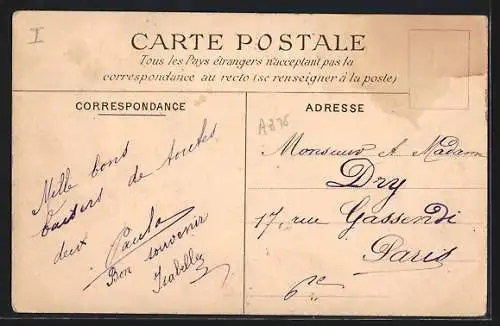 I
CARTE POSTALE
Tous les Pays étrangers n'acceptent pas la
correspondance au recto (se renseigner à la poste)
CORRESPONDANCE
ADRESSE
Mille bons
baisers de toutes
deux
Paula
Bon souvenir
Isabelle
Monsieur & Madame
Dry
17, rue Gassendi
Paris
6e